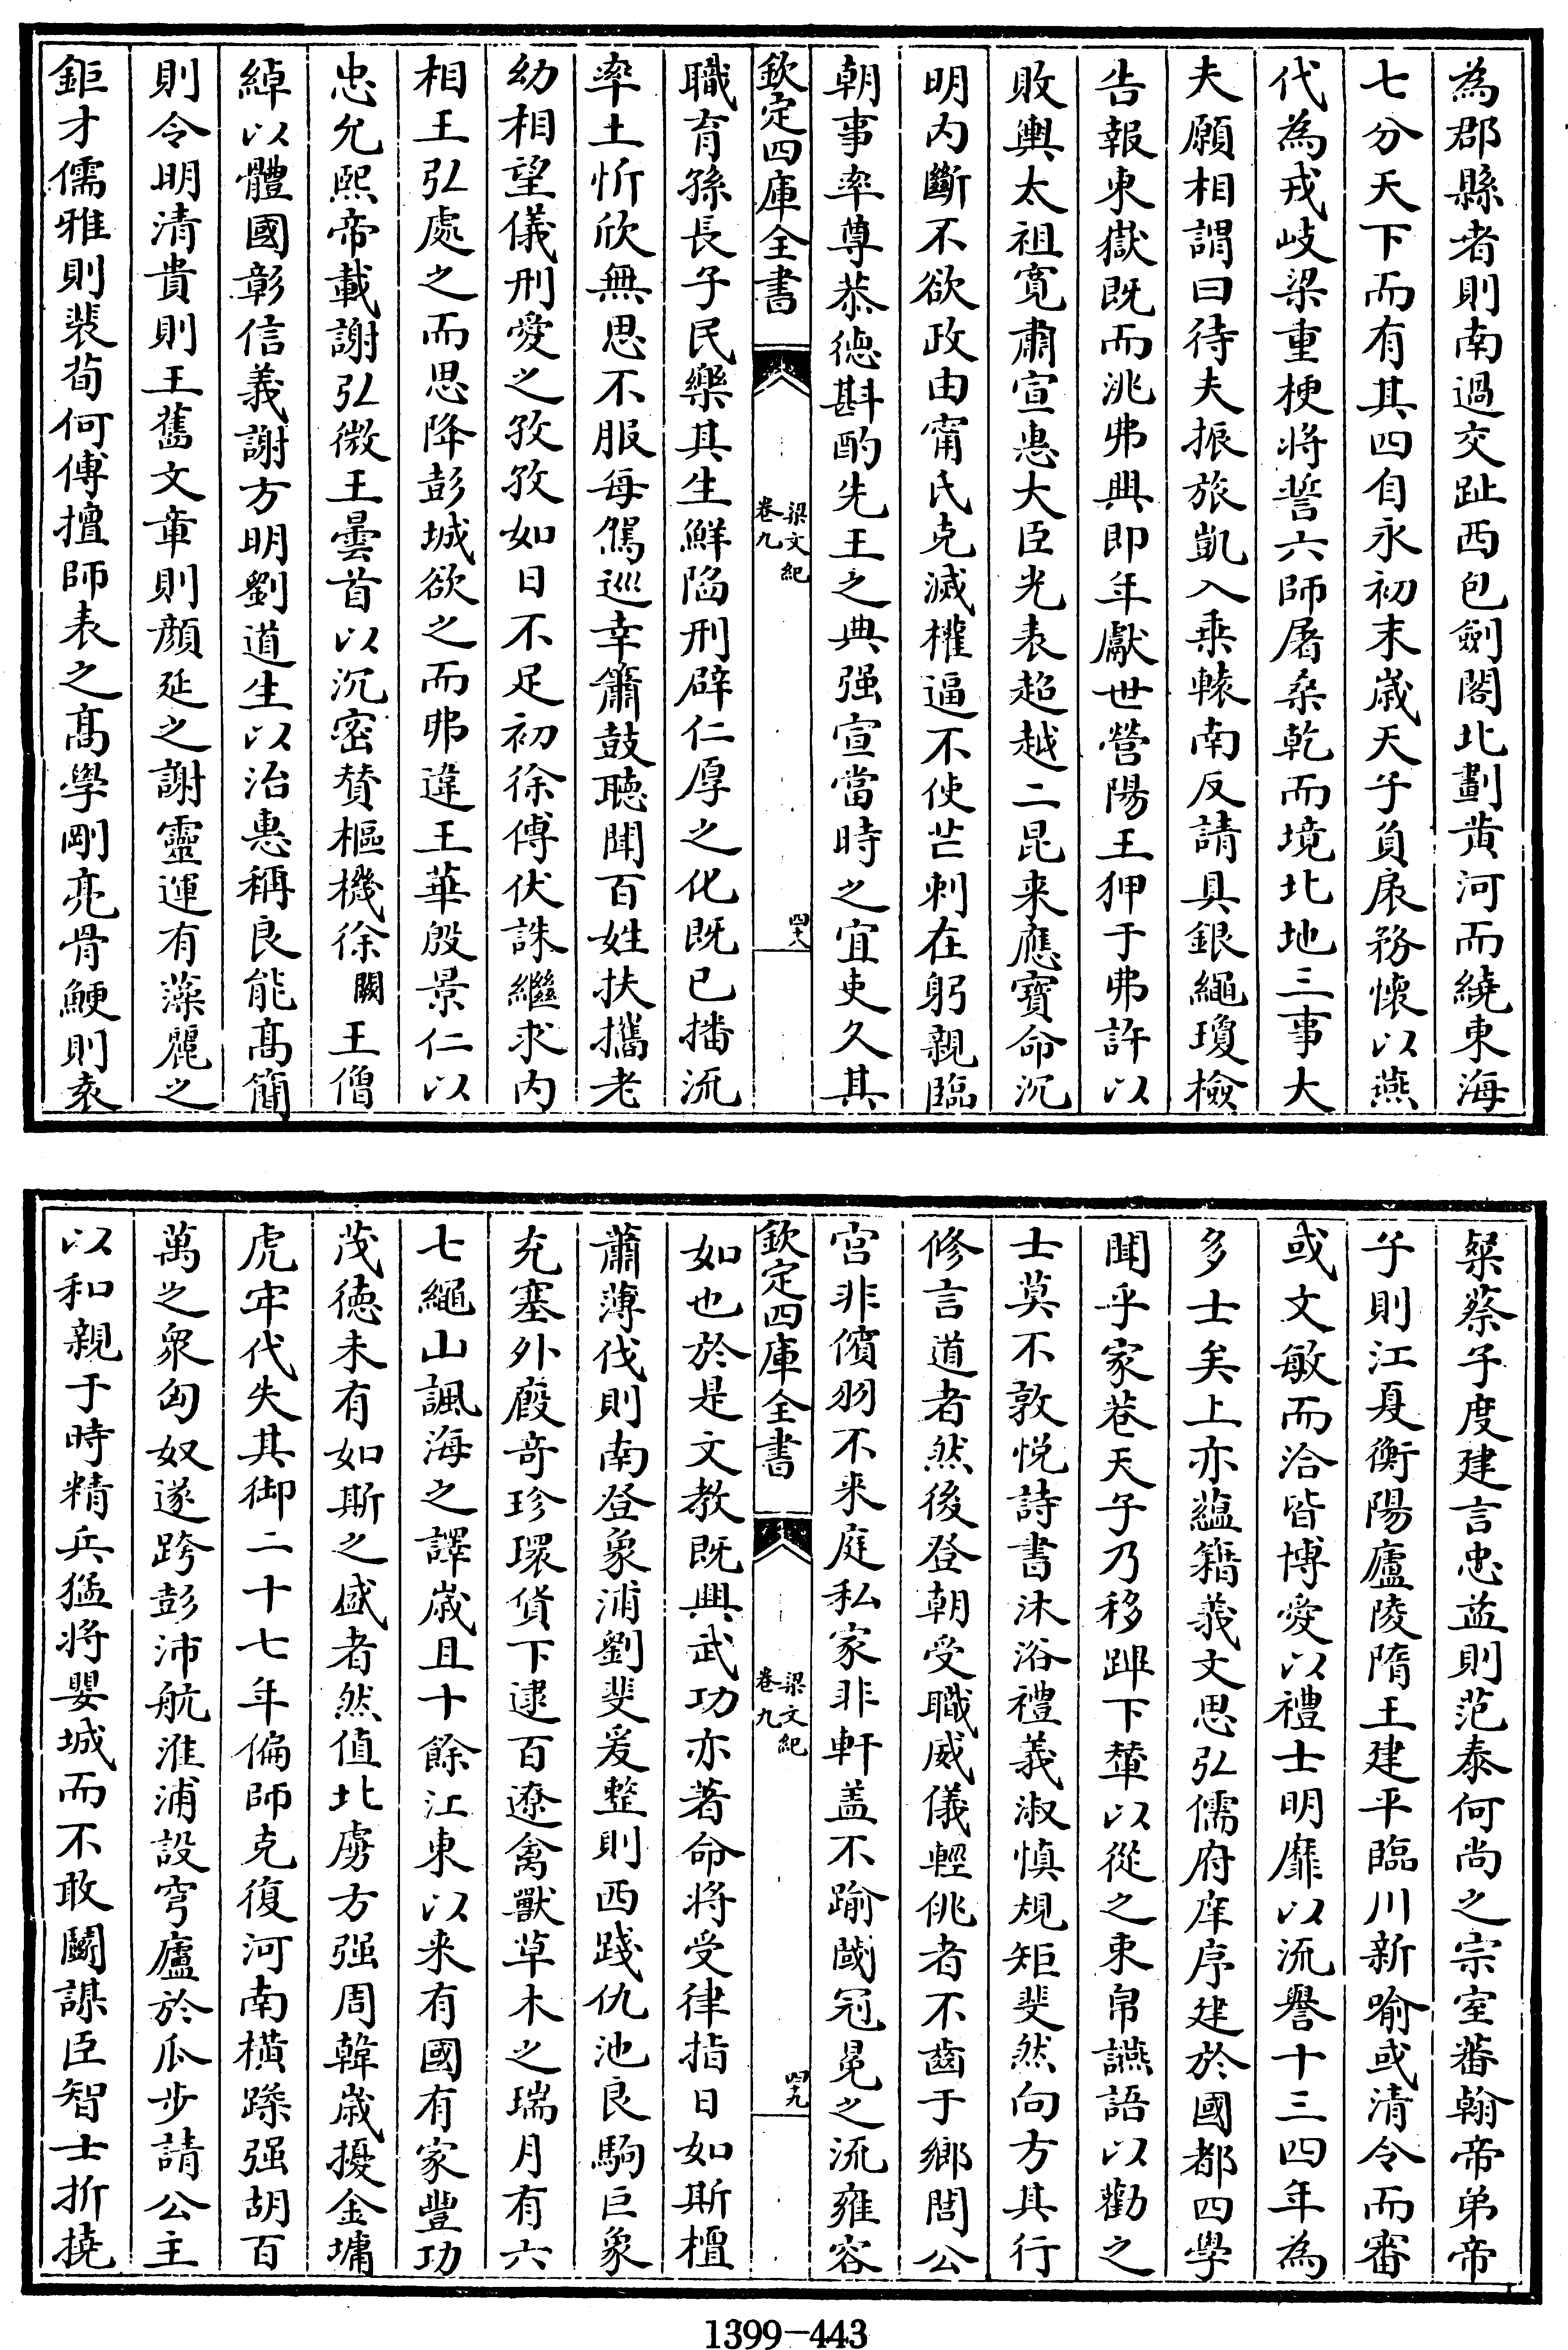 為郡縣者則南過交趾西包劍閣北劃黄河而繞東海
七分天下而有其四自永初末歳天子負扆務懐以燕
代為戎岐梁重梗将誓六師屠桑乾而境北地三事大
夫願相謂曰待夫振旅凱入乗轅南反請具銀繩瓊檢
告報東嶽既而洮弗興即年厭世營陽王狎于弗訓以
敗輿太祖寛肅宣惠大臣光表超越二昆来應寳命沉
明内斷不欲政由甯氏克滅權逼不使芒刺在躬親臨
朝事率尊恭徳斟酌先王之典强宣當時之宜吏久其
欽定四庫全書
梁文紀
卷九
四十八
職育孫長子民樂其生鮮陷刑辟仁厚之化既已播流
率土忻欣無思不服每駕巡幸簫鼓聽聞百姓扶攜老
幼相望儀刑愛之孜孜如日不足初徐傅伏誅繼求内
相王弘處之而思降彭城欲之而弗違王華殷景仁以
忠允熙帝載謝弘微王曇首以沉密賛樞機徐闕王僧
綽以體國彰信義謝方明劉道生以治惠稱良能髙簡
則令明清貴則王舊文章則顔延之謝靈運有藻麗之
鉅才儒雅則裴荀何傅擅師表之髙學剛亮骨鯁則袁
粲蔡子度建言忠益則范泰何尚之宗室蕃翰帝弟帝
子則江夏衡陽廬陵隋王建平臨川新喻或清令而審
或文敏而洽皆博愛以禮士明靡以流譽十三四年為
多士矣上亦蘊籍義文思弘儒府庠序建於國都四學
聞乎家巷天子乃移蹕下輦以從之束帛讌語以勸之
士莫不敦悦詩書沐浴禮義淑慎規矩斐然向方其行
修言道者然後登朝受職威儀輕佻者不齒于鄉閭公
宫非儐羽不来庭私家非軒盖不踰閾冠冕之流雍容
欽定四庫全書
梁文紀
卷九
四十九
如也於是文教既興武功亦著命将受律指日如斯檀
蕭薄伐則南登象浦劉斐爰整則西踐仇池良駒巨象
充塞外廄竒珍環貨下逮百遼禽獸草木之瑞月有六
七繩山諷海之譯歳且十餘江東以来有國有家豐功
茂徳未有如斯之盛者然值北虜方强周韓歳擾金墉
虎牢代失其御二十七年偏師克復河南横蹂强胡百
萬之衆匈奴遂跨彭沛航淮浦設穹廬於瓜歩請公主
以和親于時精兵猛将嬰城而不敢鬭謀臣智士折撓
1399-443